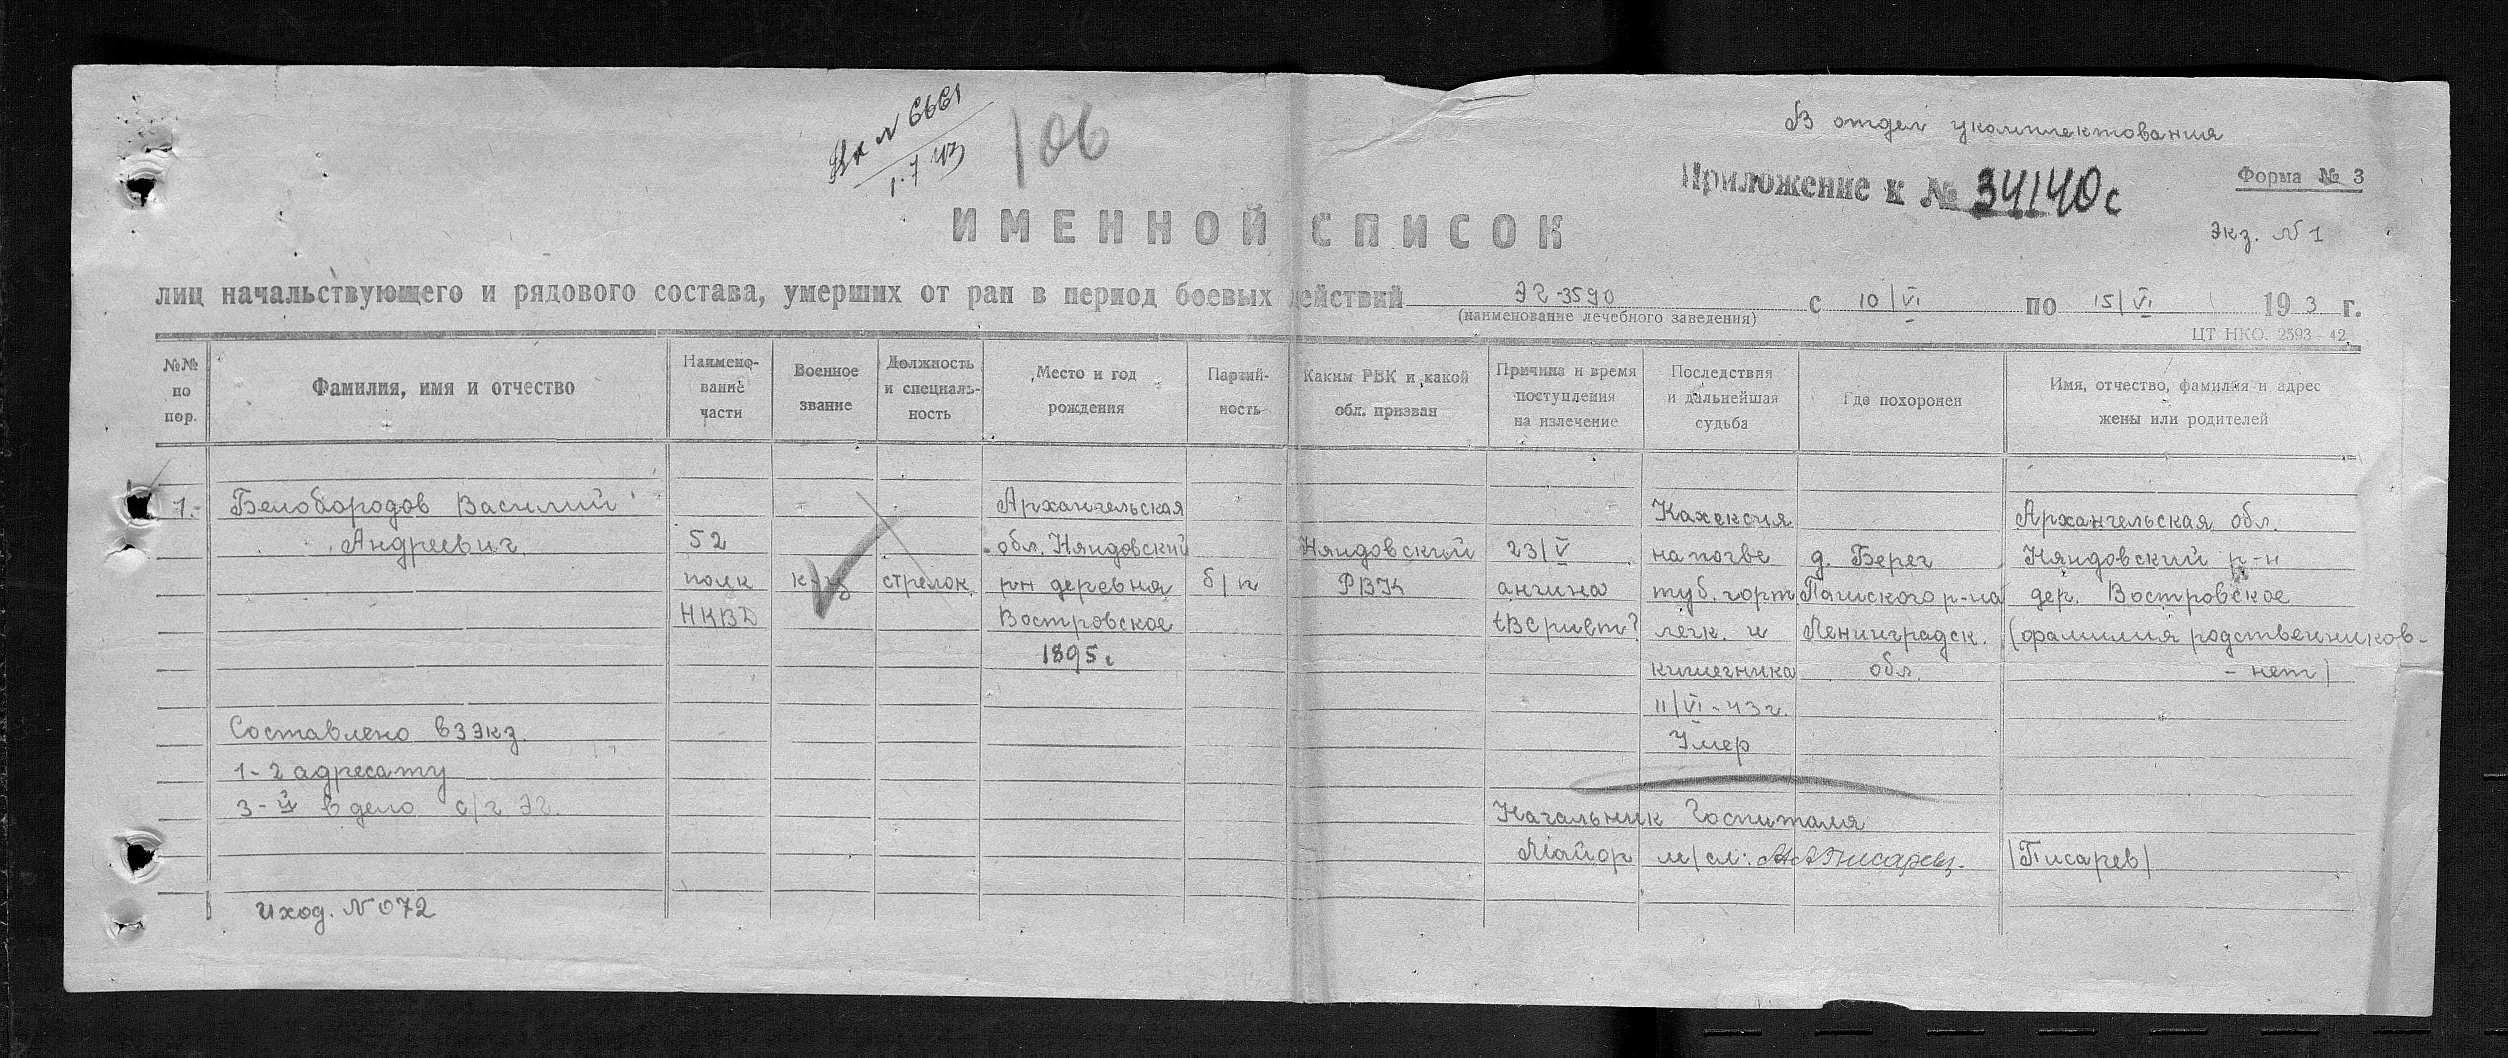 Вх N 6661
1.7.43
106
В отдел укомплектования
Приложение к № 34140с
Форма № 3
Экз. N 1
ИМЕННОЙ СПИСОК
лиц начальствующего и рядового состава, умерших от ран в период боевых действий ЭГ-3590 с 10/VI по 15/VI 1943 г.
(наименование лечебного заведения)
ЦТ НКО. 2593-42.
№№ по пор.
Фамилия, имя и отчество
Наименование части
Военное звание
Должность и специальность
Место и год рождения
Партийность
Каким РВК и какой обл. призван
Причина и время поступления на излечение
Последствия и дальнейшая судьба
Где похоронен
Имя, отчество, фамилия и адрес жены или родителей
1.
Белобородов Василий
Андреевич
52
полк
НКВД
к-ц
стрелок
Архангельская
обл. Няндовский
р-н деревня
Востровское
1895г
б/п
Няндовский
РВК
23/V
ангина
Кахексия
на почве
туб. горт
легк. и
кишечника
11/VI-43г.
Умер
д. Берег
Пашского р-на
Ленинградск.
обл.
Архангельская обл.
Няндовский р-н
дер. Востровское
(фамилия родственников-
- нет)
Составлено в 3 экз.
1-2 адресату
3-й в дело с/ч ЭГ.
Начальник Госпиталя
Майор м/сл: Писарев
/Писарев/
Исход. N 072